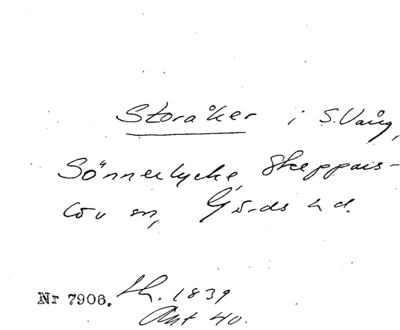 Storåker i S. Vång,
Sönnerlycke, Skeppars-
löv sn, Gärds hd.
Nr 7906. Sk. 1839
Akt 40.